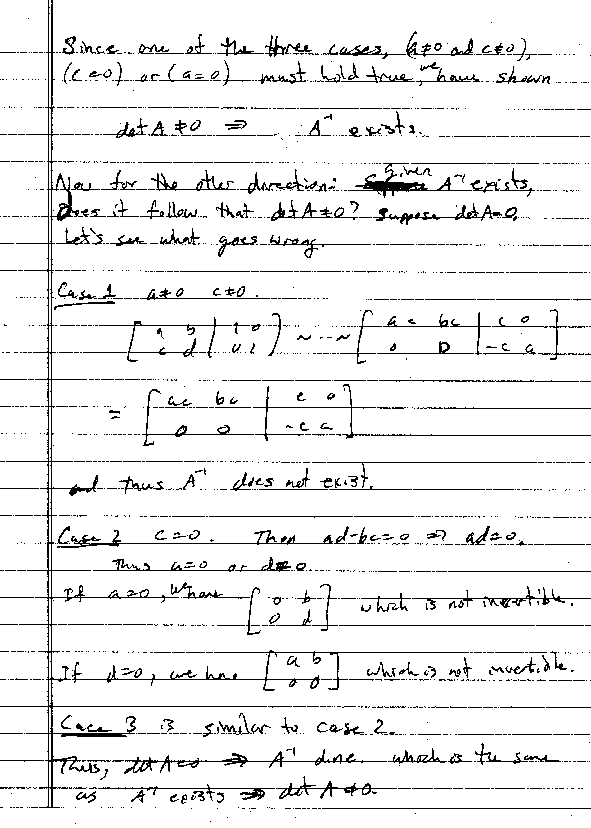 Since one of the three cases, (a≠0 and c≠0),
(c=0) or (a=0) must hold true, we have shown
det A ≠ 0 ⇒ A⁻¹ exists.
Now for the other direction: given A⁻¹ exists,
Does it follow that det A ≠ 0? Suppose det A = 0.
Let's see what goes wrong.
Case 1 a≠0 c≠0.
[a b | 1 0; c d | 0 1] ~ ... ~ [ac bc | c 0; 0 D | -c a]
= [ac bc | c 0; 0 0 | -c a]
and thus A⁻¹ does not exist.
Case 2 c=0. Then ad-bc=0 ⇒ ad=0.
Thus a=0 or d=0.
If a=0, we have [0 b; 0 d] which is not invertible.
If d=0, we have [a b; 0 0] which is not invertible.
Case 3 is similar to case 2.
Thus, det A=0 ⇒ A⁻¹ dne. which is the same
as A⁻¹ exists ⇒ det A ≠ 0.